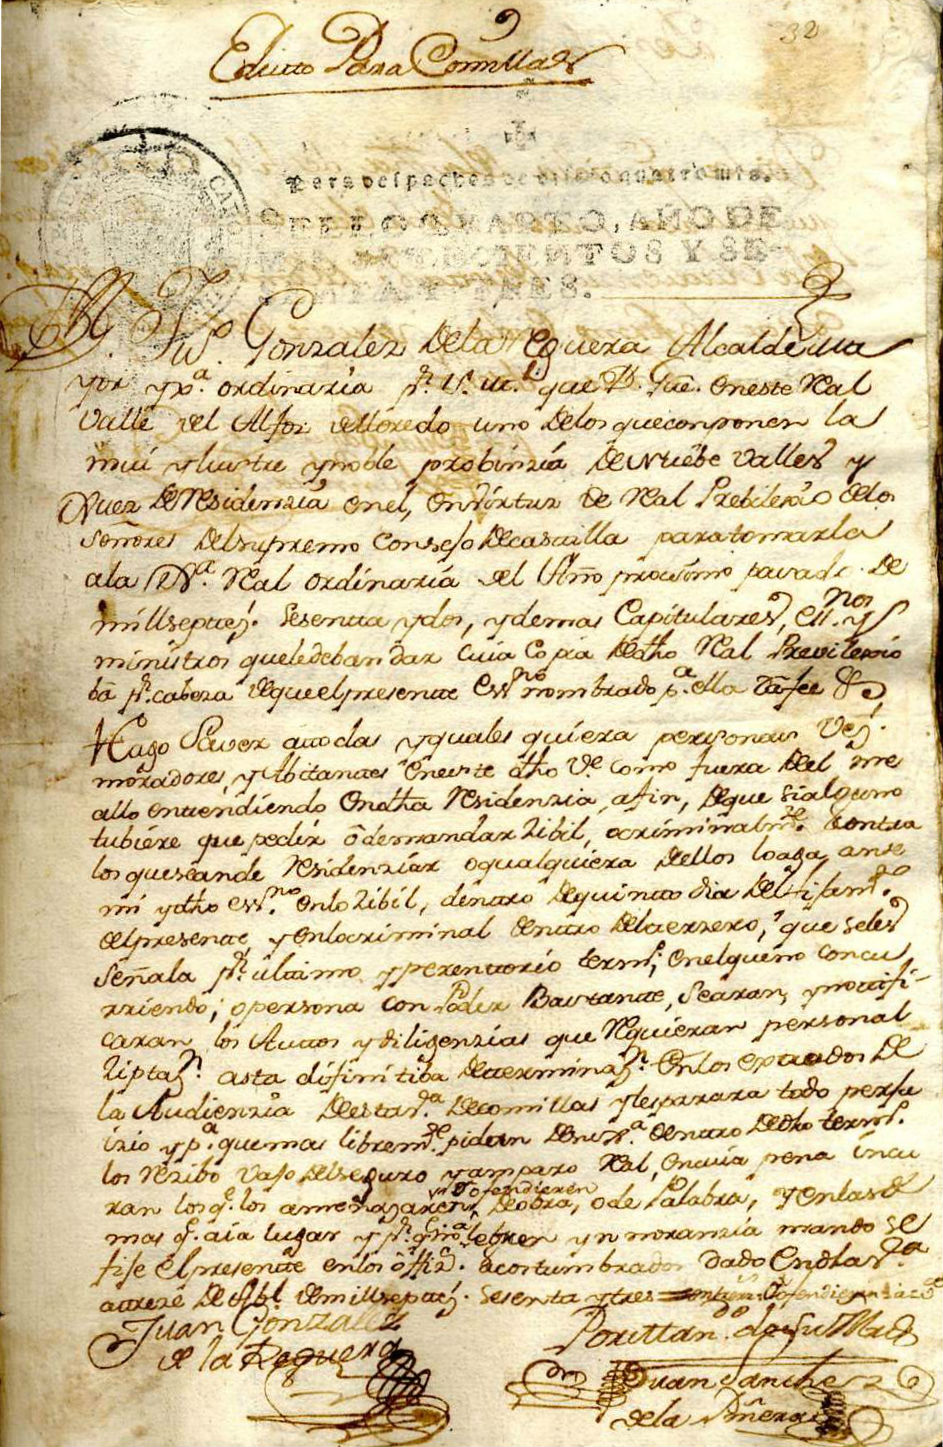 32
Edicto Para Comillas
Para despachos de oficio quatro mrs.
SELLO QUARTO, AÑO DE
MIL SETECIENTOS Y SE-
SENTA Y TRES.
D. Ju.º Gonzalez Dela Reguera Alcalde ma
yor y p.ª ordinaria p.r S. M. que D. Gue. en este Real
Valle del Alfoz de lloredo uno Delos que conponen la
mui yllustre y noble probinzia De Nuebe Valles y
Juez De Residenzia en el, en Virtud de Real Prebilexio delos
señores Del supremo Consejo De castilla para tomarla
ala Real ordinaria del Año procsimo pasado De
mill septez.s sesenta y dos, y demas Capitulares, ess.nos y
ministros que le deban Dar cuia Copia De dho Real Previlexio
ba p.r cabeza de que el presente ess.no nombrado p.ª ella da fee &
Hago Saver a todas y quales quiera personas Vez.s
moradores, y Abitantes en este dho V.e como fuera Del me
allo entendiendo en dha Residenzia, a fin, De que si alguno
tubiere que pedir o demandar Zibil, o criminalm.te contra
los que se an de residenziar o qualquiera dellos lo aga, ante
mi y dho ess.no en lo Zibil, dentro De quinto dia Del
del presente, y en lo criminal dentro De terzero, que seles
Señala p.r ultimo y perentorio term.o, en el que no concu
rriendo, o persona con Poder Bastante, Se aran, y notifi-
caran los Autos y diligenzias que Requieran personal
Zitaz.n asta difinitiba Determinaz.n en los estrados De
la Audienzia De esta V.ª De comillas y les parara todo perju
izio y p.ª que mas librem.te pidan Dentro De dho term.o
los Rezibo vajo Del seguro y amparo Real, en cuia pena incu
ran los q.e los amenazaren, u ofendieren De obra, o de Palabra, y en las de
mas q.e aia lugar y p.r q.e no aleguen ynoranzia mando se
fije el presente en los sitios acostumbrados Dado En dha V.ª
a treze De Ab.l de mill septez.s sesenta y tres
Juan Gonzalez
de la Reguera
Por Mttan.do de su Mrd
Juan Sanchez
de la